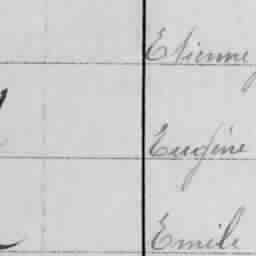 Etienne
Eugène
Emile